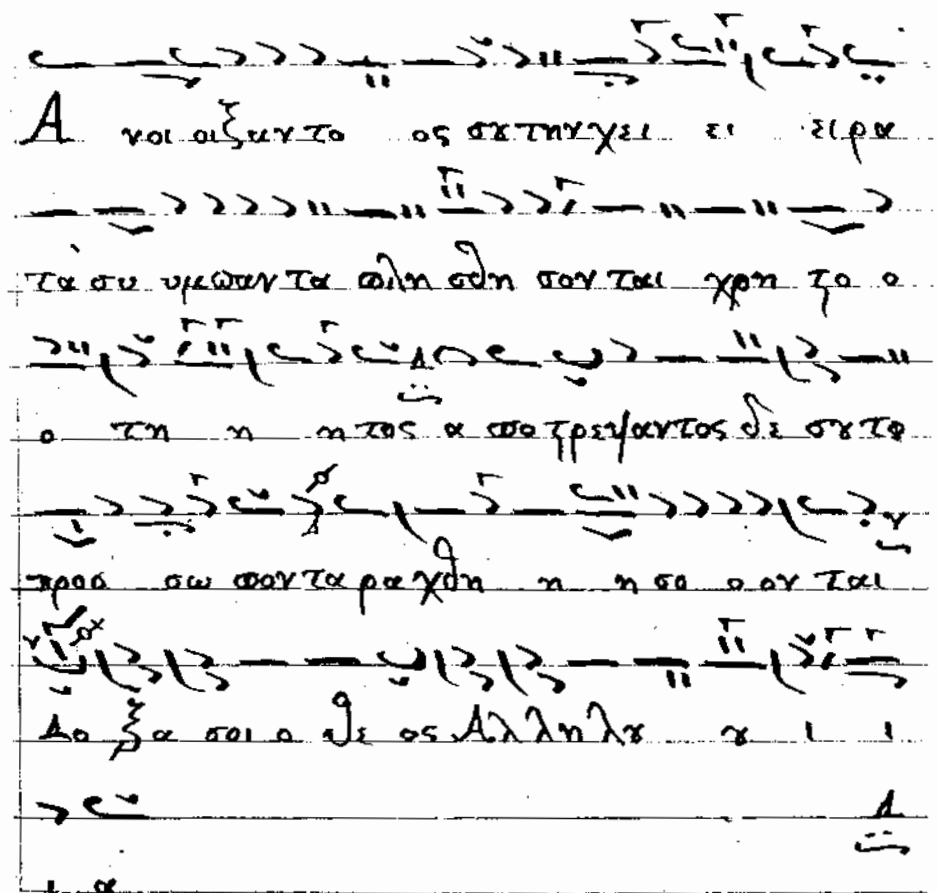 Α νοι οιξαντο ος σȣ την χει ει ειρα
τὰ συ υμπαν τα πλη σθη σον ται χρη ϛο ο
ο τη η η τος α πο ϛρεψαντος δε σȣ το
προσ σω πον τα ρα χθη η η σο ο ον ται
Δο ξα σοι ο θε ος Αλ λη λȣ ȣ ι ι
ι α